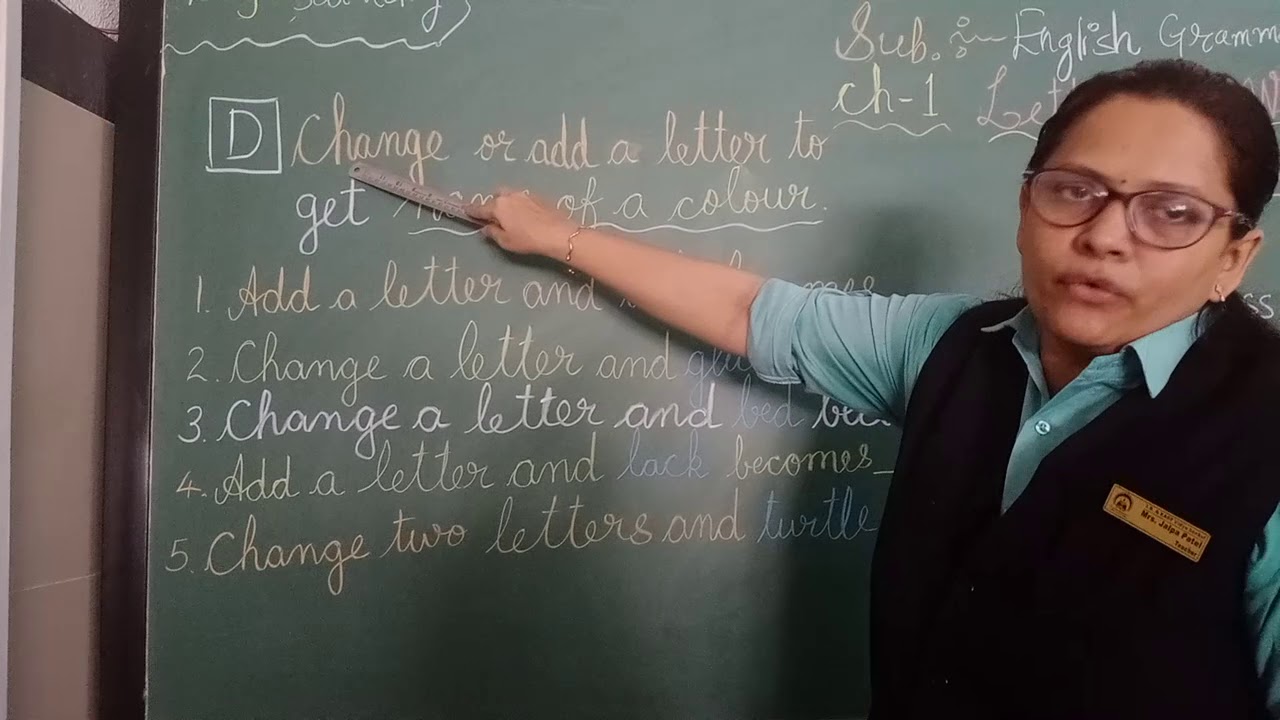 Sub. :- English Gramm
ch-1 Let
D Change or add a letter to
get name of a colour.
1. Add a letter and
2. Change a letter and
3. Change a letter and bed
4. Add a letter and lack becomes_
5. Change two letters and turtle
Mrs. Jalpa Patel
Teacher